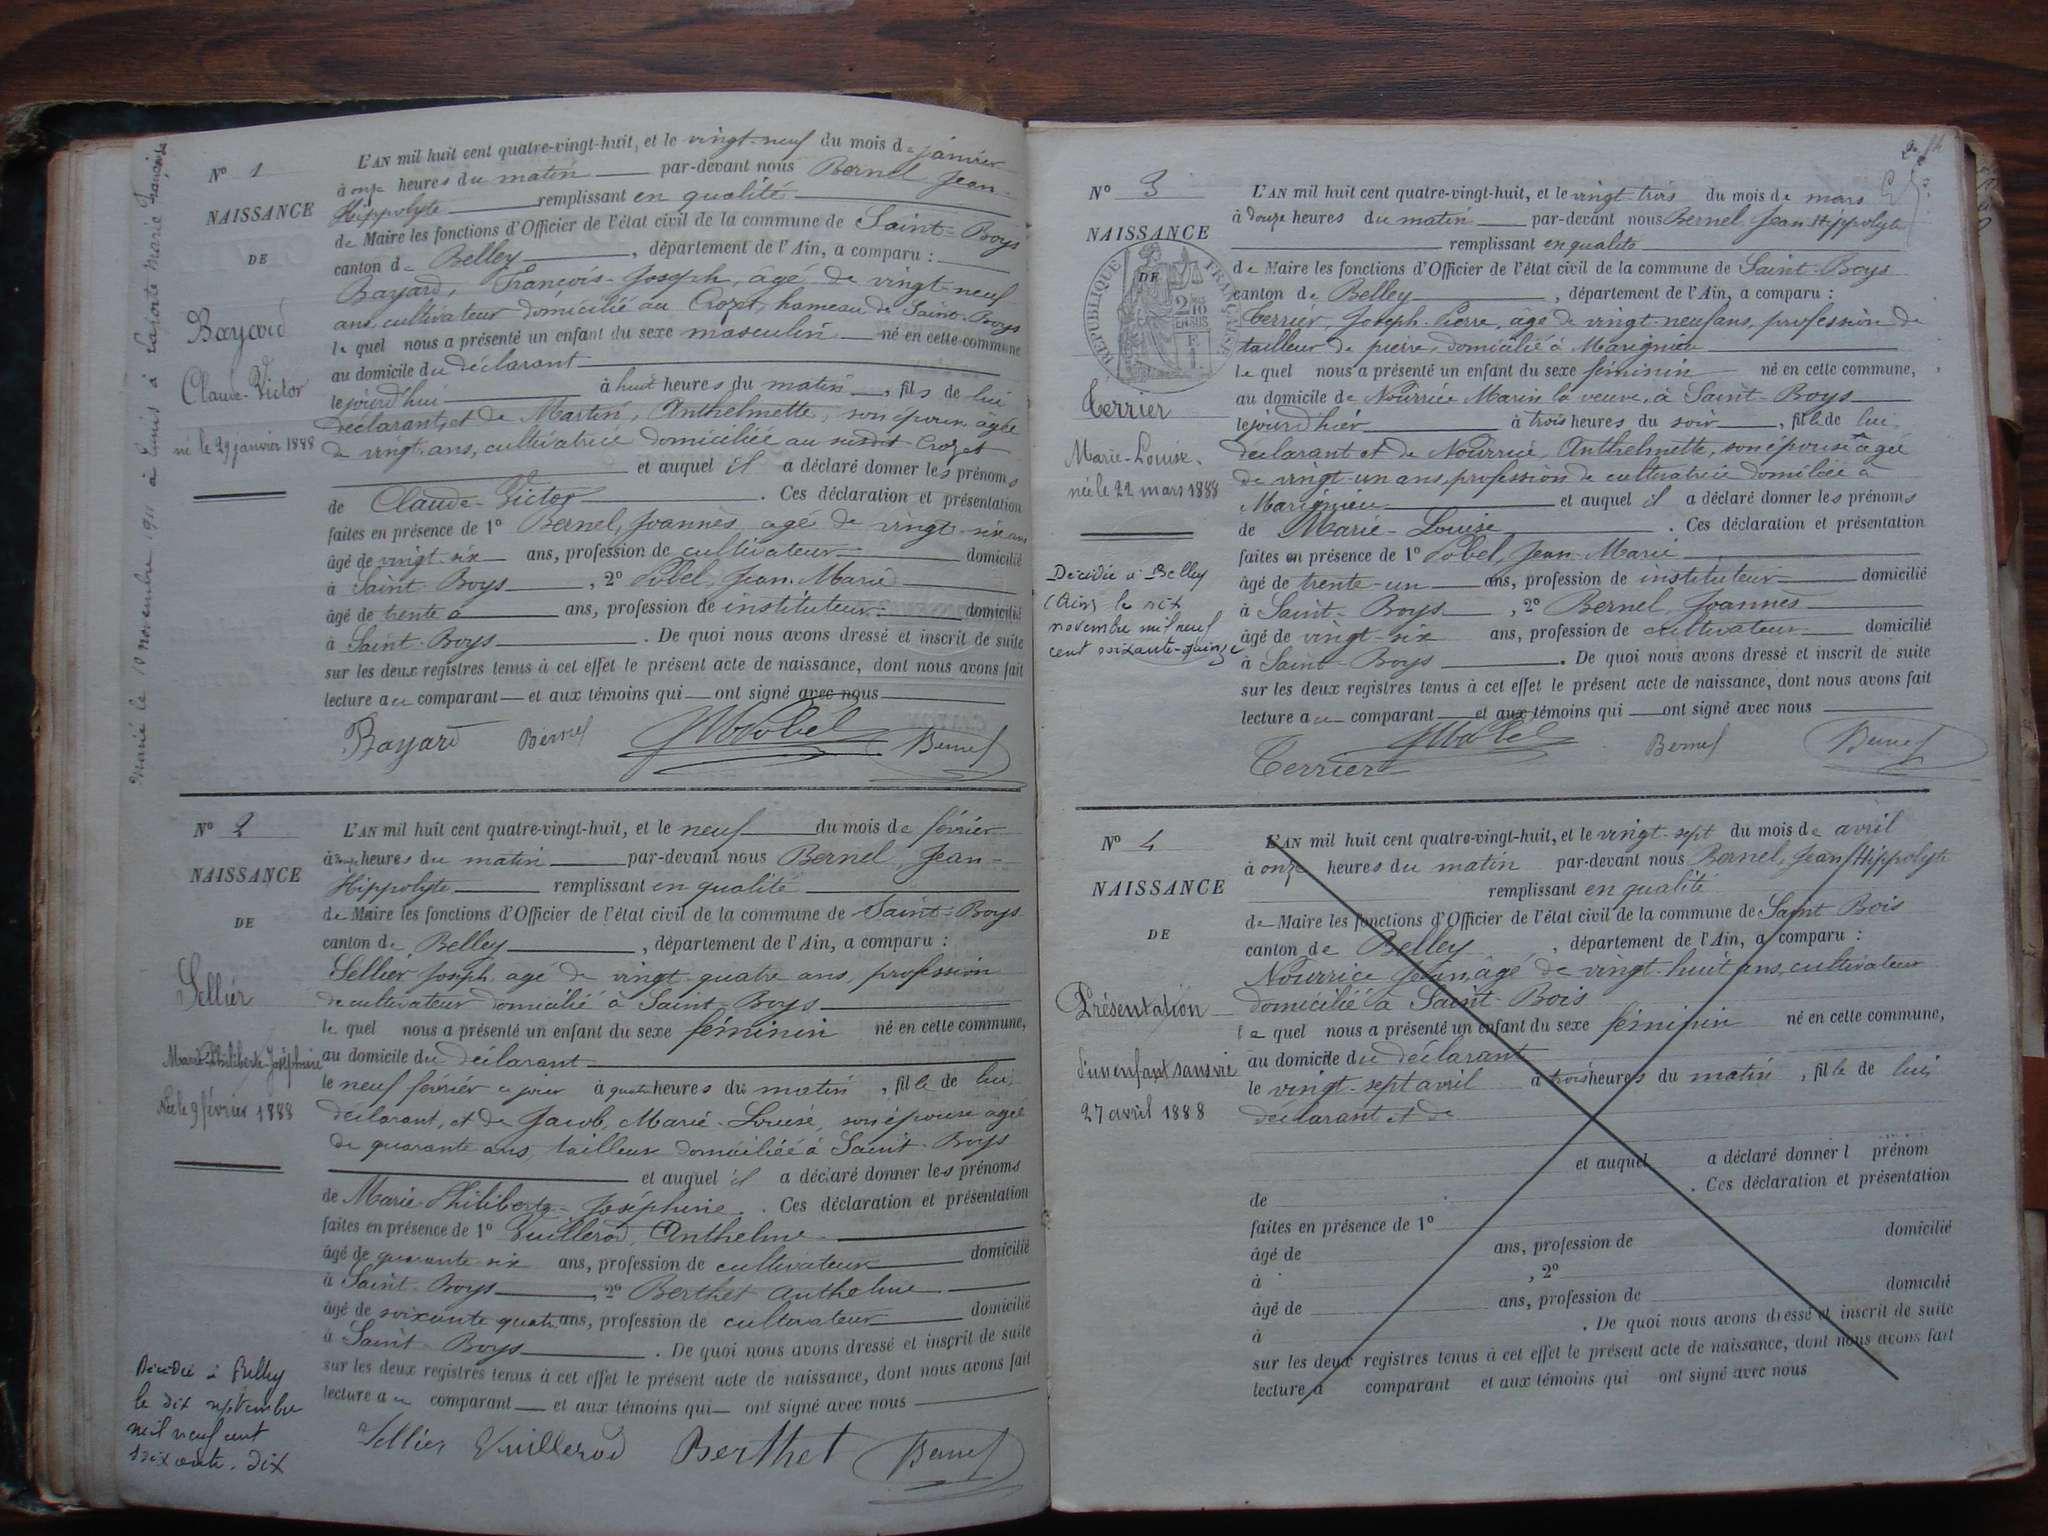 Marié le 10 novembre 1911 à à Laporte Marie Françoise
N° 1
NAISSANCE
DE
Bayard
Claude-Victor
né le 29 janvier 1888
L'AN mil huit cent quatre-vingt-huit, et le vingt-neuf du mois de janvier
à onze heures du matin par-devant nous Bernel Jean-
Hippolyte remplissant en qualité
de Maire les fonctions d'Officier de l'état civil de la commune de Saint-Boys
canton de Belley, département de l'Ain, a comparu :
Bayard, François-Joseph, âgé de vingt-neuf
ans, cultivateur domicilié au Crozet, hameau de Saint-Boys
lequel nous a présenté un enfant du sexe masculin né en cette commune
au domicile du déclarant
lejourd'hui à huit heures du matin, fils de lui
déclarant, et de Martin, Anthelmette, son épouse âgée
de vingt ans, cultivatrice domiciliée au susdit Crozet
et auquel il a déclaré donner les prénoms
de Claude-Victor. Ces déclaration et présentation
faites en présence de 1° Bernel, Joannès, agé de vingt-six ans
âgé de vingt-six ans, profession de cultivateur domicilié
à Saint-Boys, 2° Pobel, Jean-Marie
âgé de trente ans, profession de instituteur domicilié
à Saint-Boys. De quoi nous avons dressé et inscrit de suite
sur les deux registres tenus à cet effet le présent acte de naissance, dont nous avons fait
lecture au comparant et aux témoins qui ont signé avec nous
Bayard Bernel JM Pobel Bernel
N° 2
NAISSANCE
DE
Sellier
Marie-Philiberte-Joséphine
Née le 9 février 1888
Décédée à Belley
le dix septembre
mil neuf cent
soixante-dix
L'AN mil huit cent quatre-vingt-huit, et le neuf du mois de février
à onze heures du matin par-devant nous Bernel, Jean-
Hippolyte remplissant en qualité
de Maire les fonctions d'Officier de l'état civil de la commune de Saint-Boys
canton de Belley, département de l'Ain, a comparu :
Sellier Joseph, agé de vingt-quatre ans, profession
de cultivateur domicilié à Saint-Boys
lequel nous a présenté un enfant du sexe féminin né en cette commune,
au domicile du déclarant
le neuf février ce jour à quatre heures du matin, fille de lui
déclarant, et de Jacob, Marie-Louise, son épouse âgée
de quarante ans, tailleuse domiciliée à Saint-Boys
et auquel il a déclaré donner les prénoms
de Marie-Philiberte-Joséphine. Ces déclaration et présentation
faites en présence de 1° Vuillerod, Anthelme
âgé de quarante-six ans, profession de cultivateur domicilié
à Saint-Boys, 2° Berthet Anthelme
âgé de soixante quatre ans, profession de cultivateur domicilié
à Saint-Boys. De quoi nous avons dressé et inscrit de suite
sur les deux registres tenus à cet effet le présent acte de naissance, dont nous avons fait
lecture au comparant et aux témoins qui ont signé avec nous
Sellier Vuillerod Berthet Bernel
N° 3
NAISSANCE
DE
RÉPUBLIQUE FRANÇAISE
Terrier
Marie-Louise
née le 22 mars 1888
Décédée à Belley
(Ain) le six
novembre mil neuf
cent soixante-quinze
L'AN mil huit cent quatre-vingt-huit, et le vingt-trois du mois de mars
à douze heures du matin par-devant nous Bernel, Jean Hippolyte
remplissant en qualité
de Maire les fonctions d'Officier de l'état civil de la commune de Saint-Boys
canton de Belley, département de l'Ain, a comparu :
Terrier, Joseph-Pierre, âgé de vingt-neuf ans, profession de
tailleur de pierre, domicilié à Marignieu
lequel nous a présenté un enfant du sexe féminin né en cette commune,
au domicile de Nourrice Marin la veuve, à Saint-Boys
lejourd'hier à trois heures du soir, fille de lui
déclarant et de Nourrice, Anthelmette, son épouse agée
de vingt-un ans, profession de cultivatrice domiciliée à
Marignieu et auquel il a déclaré donner les prénoms
de Marie-Louise. Ces déclaration et présentation
faites en présence de 1° Pobel, Jean-Marie
âgé de trente-un ans, profession de instituteur domicilié
à Saint-Boys, 2° Bernel, Joannès
âgé de vingt-six ans, profession de cultivateur domicilié
à Saint-Boys. De quoi nous avons dressé et inscrit de suite
sur les deux registres tenus à cet effet le présent acte de naissance, dont nous avons fait
lecture au comparant et aux témoins qui ont signé avec nous
Terrier JM Pobel Bernel Bernel
N° 4
NAISSANCE
DE
Présentation
d'un enfant sans vie
27 avril 1888
L'AN mil huit cent quatre-vingt-huit, et le vingt-sept du mois de avril
à onze heures du matin par-devant nous Bernel, Jean Hippolyte
remplissant en qualité
de Maire les fonctions d'Officier de l'état civil de la commune de Saint Bois
canton de Belley, département de l'Ain, a comparu :
Nourrice Jean, âgé de vingt-huit ans, cultivateur
domicilié à Saint-Bois
lequel nous a présenté un enfant du sexe féminin né en cette commune,
au domicile du déclarant
le vingt-sept avril à trois heures du matin, fille de lui
déclarant et de
et auquel a déclaré donner l prénom
de . Ces déclaration et présentation
faites en présence de 1°
âgé de ans, profession de domicilié
à , 2°
âgé de ans, profession de domicilié
à . De quoi nous avons dressé et inscrit de suite
sur les deux registres tenus à cet effet le présent acte de naissance, dont nous avons fait
lecture a comparant et aux témoins qui ont signé avec nous